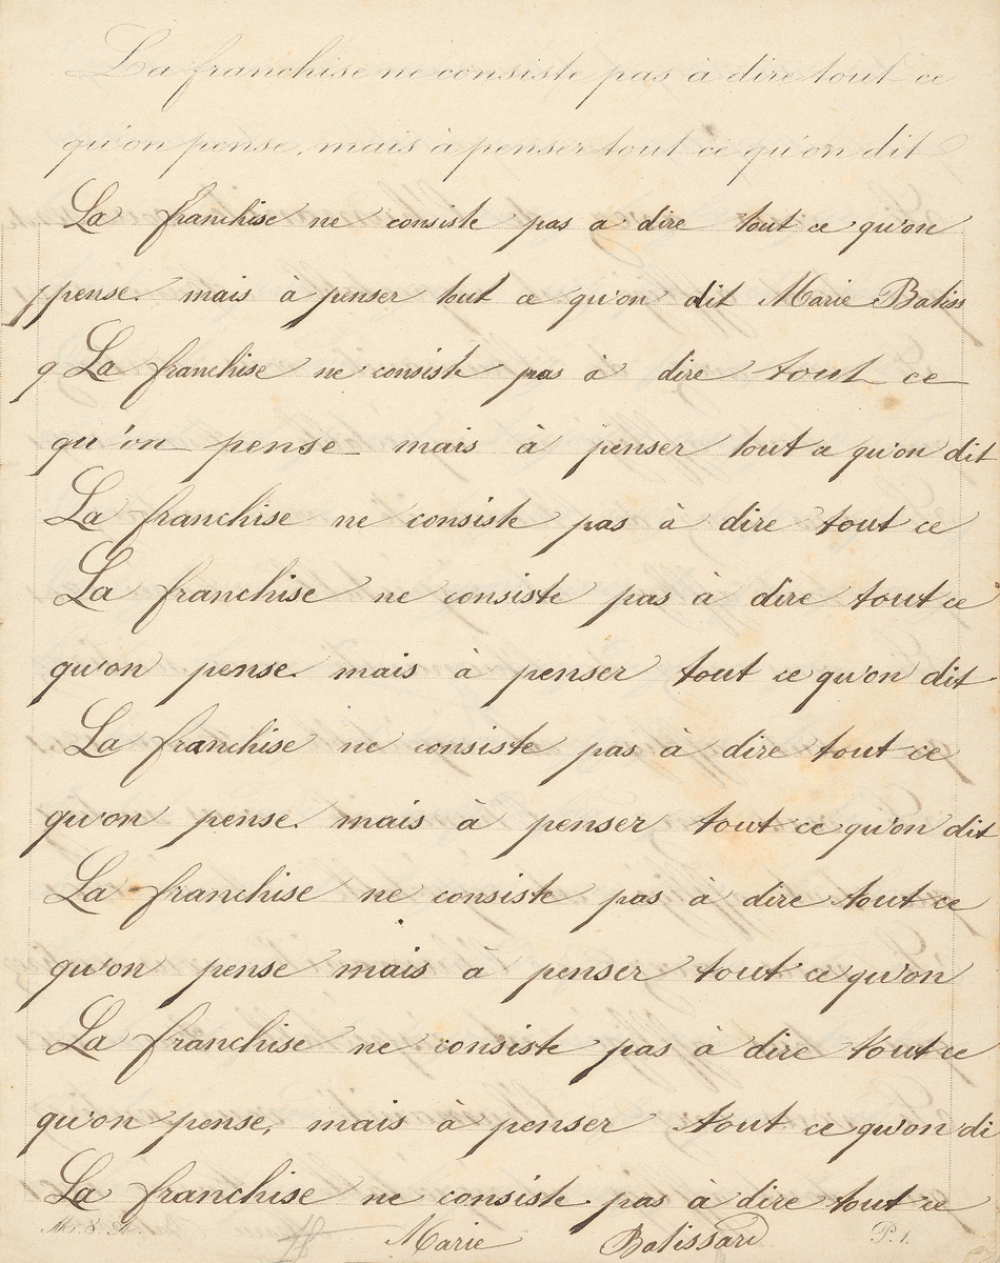 La franchise ne consiste pas à dire tout ce
qu'on pense, mais à penser tout ce qu'on dit
La franchise ne consiste pas a dire tout ce qu'on
pense. mais à penser tout ce qu'on dit Marie Batiss
q La franchise ne consiste pas à dire tout ce
qu'on pense mais à penser tout ce qu'on dit
La franchise ne consiste pas à dire tout ce
La franchise ne consiste pas à dire tout ce
qu'on pense. mais à penser tout ce qu'on dit
La franchise ne consiste pas à dire tout ce
qu'on pense. mais à penser tout ce qu'on dit
La franchise ne consiste pas à dire tout ce
qu'on pense mais à penser tout ce qu'on
La franchise ne consiste pas à dire tout ce
qu'on pense, mais à penser tout ce qu'on di
La franchise ne consiste pas à dire tout ce
Marie Batissard P. 1.